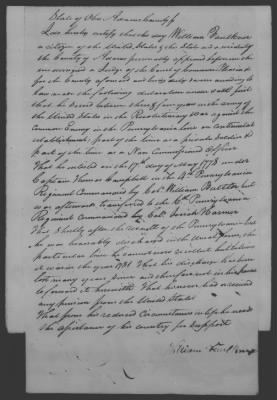 State of Ohio Adams County ss
I do hereby certify that this day William Faulkner
a citizen of the United States & the State and a resident of
the County of Adams personally appeared before me the
undersigned a Judge of the Court of Common Pleas
for the County aforesaid and being duly sworn according to
law made the following declaration under oath
that he served between three & four years in the army of
the United States in the Revolutionary War against the
common Enemy in the Pennsylvania Line on Continental
establishment part of the time as a private Soldier &
part of the time as a Non Commissioned Officer
That he enlisted on the 17th day of May 1778 under
Captain Thomas Campbell in the 4th Pennsylvania
Regiment Commanded by Col. William Butler but
was afterwards transferred to the Pennsylvania
Regiment Commanded by Col. Josiah Harmar
That shortly after the revolt of the Pennsylvania line
he was honorably discharged with
particular time he cannot now recollect but believes
it was in the year 1781 That his discharge has been
lost many years since and therefore not in his power
to forward it herewith That he never had received
any pension from the United States
That from his reduced Circumstances in life he needs
the assistance of his country for Support
William Faulkner